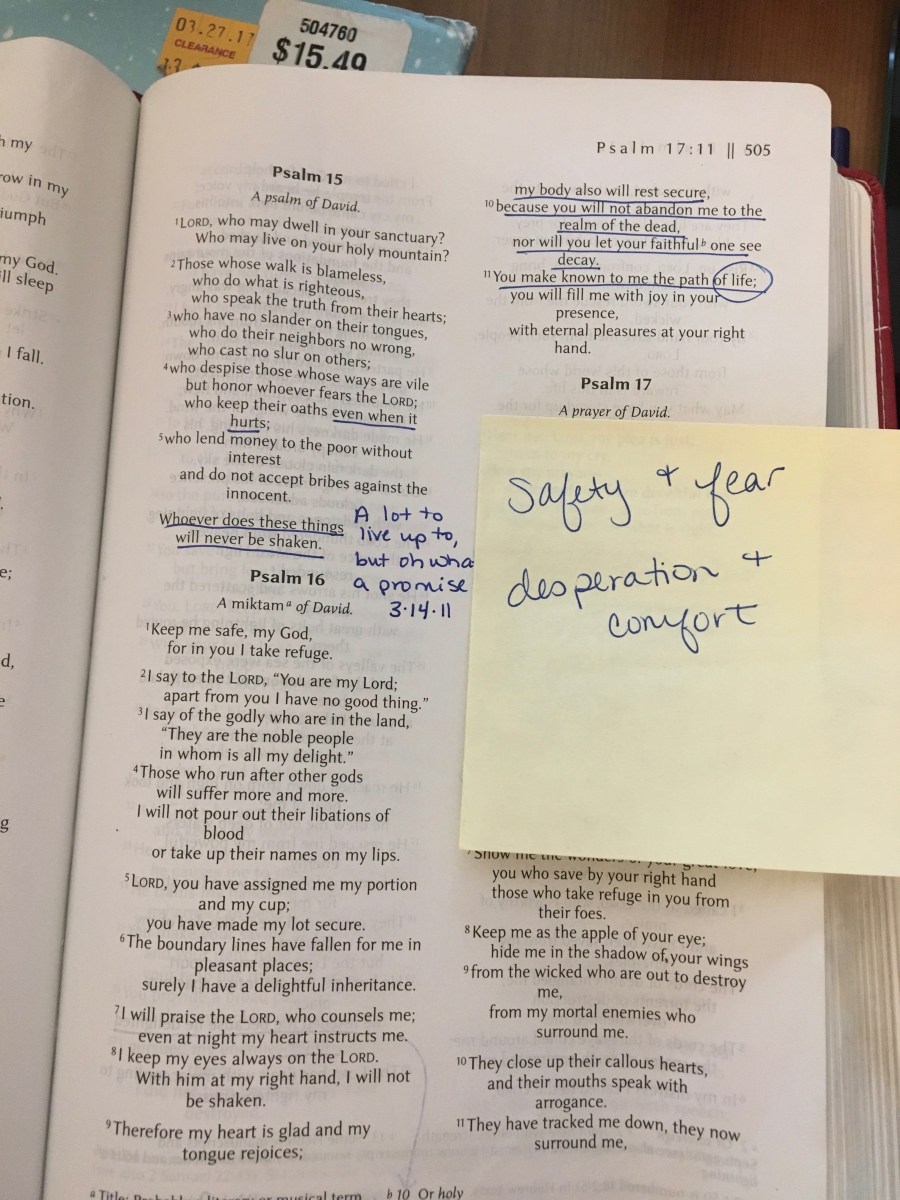 03.27.17
CLEARANCE
504760
$15.49
my
row in my
iumph
my God.
ll sleep
I fall.
tion.
e;
d,
g
Psalm 17:11 || 505
Psalm 15
A psalm of David.
1 LORD, who may dwell in your sanctuary?
Who may live on your holy mountain?
2 Those whose walk is blameless,
who do what is righteous,
who speak the truth from their hearts;
3 who have no slander on their tongues,
who do their neighbors no wrong,
who cast no slur on others;
4 who despise those whose ways are vile
but honor whoever fears the LORD;
who keep their oaths even when it
hurts;
5 who lend money to the poor without
interest
and do not accept bribes against the
innocent.
Whoever does these things
will never be shaken.
A lot to
live up to,
but oh wha
a promise
3·14·11
Psalm 16
A miktam a of David.
1 Keep me safe, my God,
for in you I take refuge.
2 I say to the LORD, “You are my Lord;
apart from you I have no good thing.”
3 I say of the godly who are in the land,
“They are the noble people
in whom is all my delight.”
4 Those who run after other gods
will suffer more and more.
I will not pour out their libations of
blood
or take up their names on my lips.
5 LORD, you have assigned me my portion
and my cup;
you have made my lot secure.
6 The boundary lines have fallen for me in
pleasant places;
surely I have a delightful inheritance.
7 I will praise the LORD, who counsels me;
even at night my heart instructs me.
8 I keep my eyes always on the LORD.
With him at my right hand, I will not
be shaken.
9 Therefore my heart is glad and my
tongue rejoices;
my body also will rest secure,
10 because you will not abandon me to the
realm of the dead,
nor will you let your faithful b one see
decay.
11 You make known to me the path of life;
you will fill me with joy in your
presence,
with eternal pleasures at your right
hand.
Psalm 17
A prayer of David.
Safety + fear
desperation +
comfort
7 Show me the wonders of your great love,
you who save by your right hand
those who take refuge in you from
their foes.
8 Keep me as the apple of your eye;
hide me in the shadow of your wings
9 from the wicked who are out to destroy
me,
from my mortal enemies who
surround me.
10 They close up their callous hearts,
and their mouths speak with
arrogance.
11 They have tracked me down, they now
surround me,
a Title: Probably a literary or musical term
b 10 Or holy